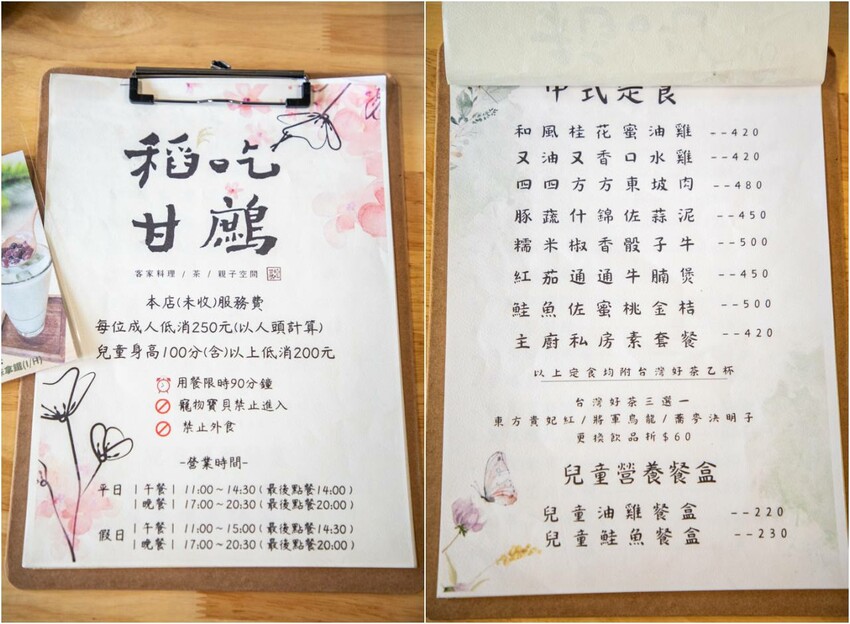 稻吃
甘鷓
客家料理 / 茶 / 親子空間
本店(未收)服務費
每位成人低消250元(以人頭計算)
兒童身高100分(含)以上低消200元
用餐限時90分鐘
寵物寶貝禁止進入
禁止外食
-營業時間-
平日 | 午餐 | 11:00~14:30 ( 最後點餐14:00 )
| 晚餐 | 17:00~20:30 ( 最後點餐20:00 )
假日 | 午餐 | 11:00~15:00 ( 最後點餐14:30 )
| 晚餐 | 17:00~20:30 ( 最後點餐20:00 )
中式定食
和風桂花蜜油雞 --420
又油又香口水雞 --420
四四方方東坡肉 --480
豚蔬什錦佐蒜泥 --450
糯米椒香骰子牛 --500
紅茄通通牛腩煲 --450
鮭魚佐蜜桃金桔 --500
主廚私房素套餐 --420
以上定食均附台灣好茶乙杯
台灣好茶三選一
東方貴妃紅/將軍烏龍/蕎麥決明子
更換飲品折$60
兒童營養餐盒
兒童油雞餐盒 --220
兒童鮭魚餐盒 --230